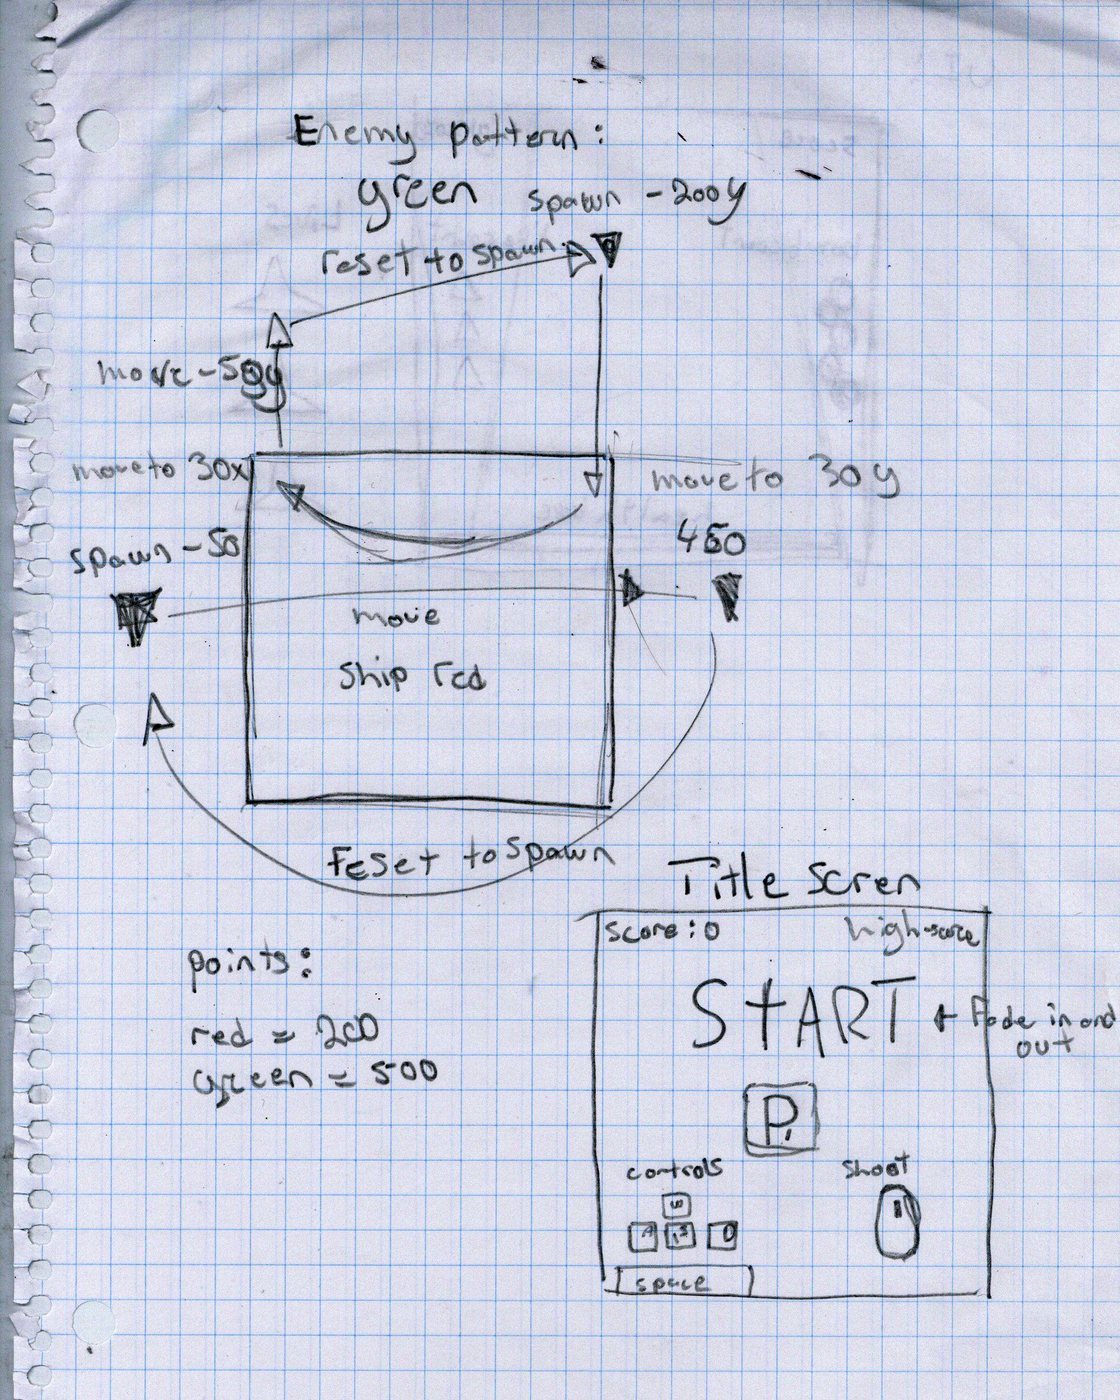 Enemy pattern:
green
spawn -200y
reset to spawn
move -50y
move to 30x
move to 30y
spawn -50
450
move
ship red
reset to spawn
Title Scren
score: 0
high-score
START
← Fade in and
out
points:
red = 200
green = 500
P
controls
shoot
W
A S D
space